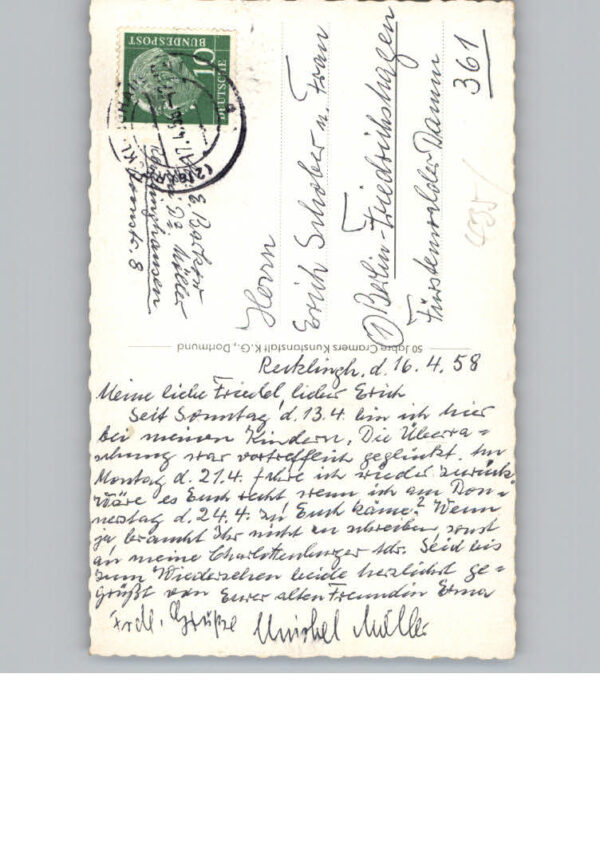 Recklingh, d. 16.4.58
Meine liebe Friedel, lieber Erich
Seit Sonntag d. 13.4. bin ich hier
bei meinen Kindern. Die Überra=
schung war vortrefflich geglückt. Am
Montag d. 21.4. fahre ich wieder zurück.
Wäre es Euch recht wenn ich am Don=
nerstag d. 24.4. zu Euch käme? Wenn
ja braucht Ihr nicht zu schreiben, sonst
an meine Charlottenburger Adr. Seid bis
zum Wiedersehen beide herzlichst ge=
grüßt von Eurer alten Freundin Erna
Frdl. Grüße Müller
50 Jahre Cramers Kunstanstalt K.G., Dortmund
Herrn
Erich Schober u. Frau
1 Berlin-Friedrichshagen
Fürstenwalder Damm
361
435/
E. Barker
Müller
Recklinghausen
8
10
DEUTSCHE
BUNDESPOST